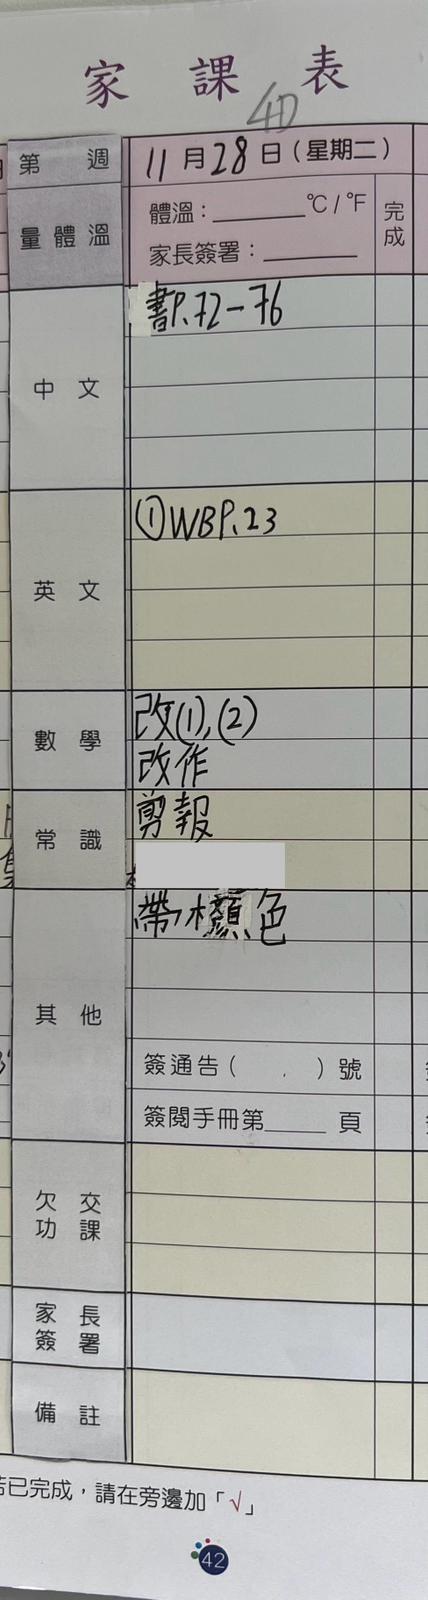 家課表
第 週
11月28日(星期二)
量體溫
體溫:______°C/°F
家長簽署:______
完成
中文
書P.72-76
英文
①WBP.23
數學
改(1),(2)
改作
常識
剪報
其他
帶木顏色
簽通告( , )號
簽閱手冊第____頁
欠交
功課
家長
簽署
備註
若已完成,請在旁邊加「√」
42